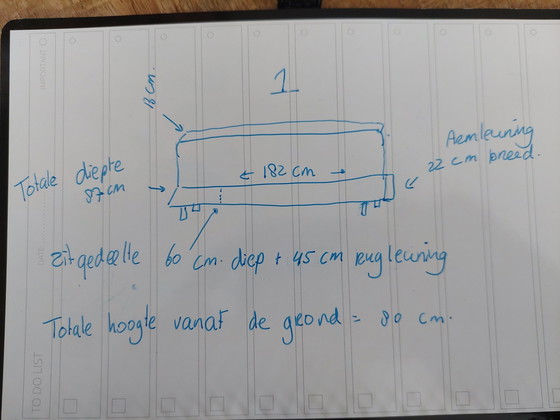 IMPORTANT
1
18 cm.
Armleuning
22 cm breed.
← 182 cm →
Totale diepte
87 cm
Zitgedeelte 60 cm. diep + 45 cm rugleuning
Totale hoogte vanaf de grond = 80 cm.
DATE
TO DO LIST